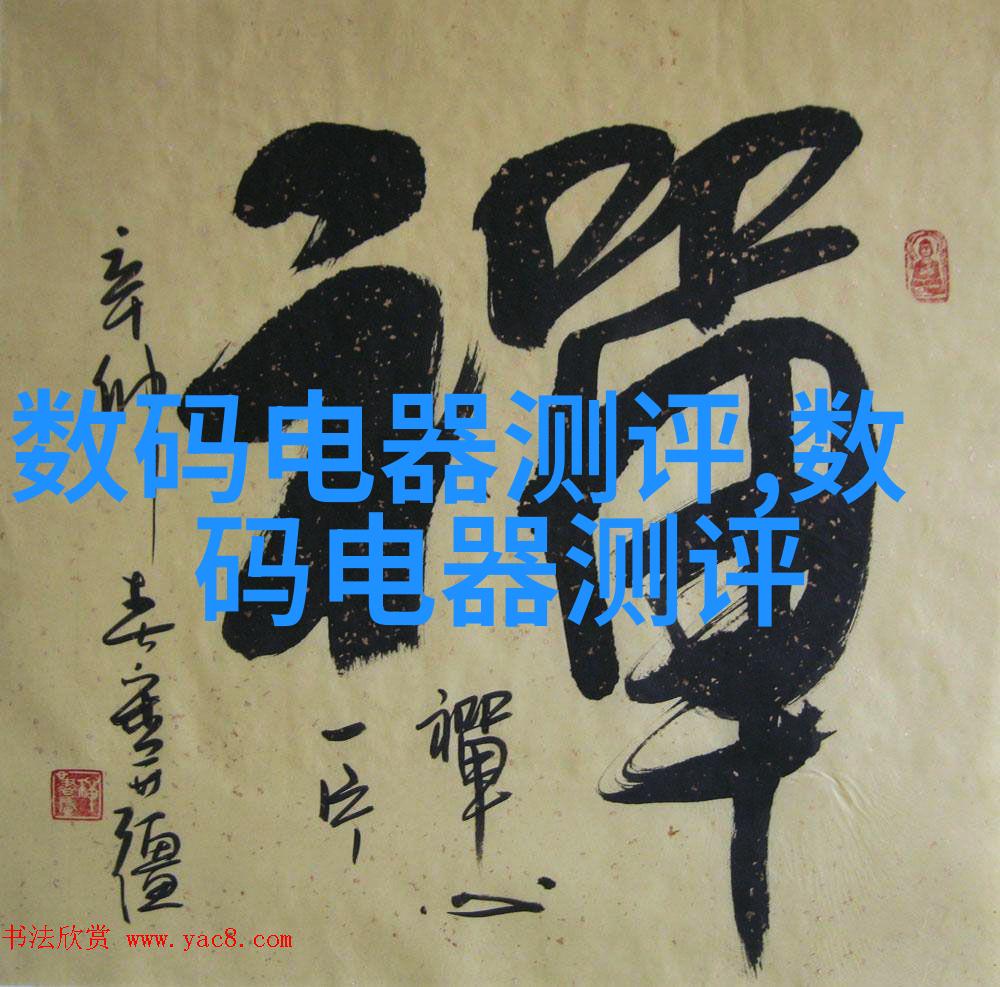 禪
数码电器测评,数
码电器测评
禪心
一片
辛卯春
书法欣赏 www.yac8.com